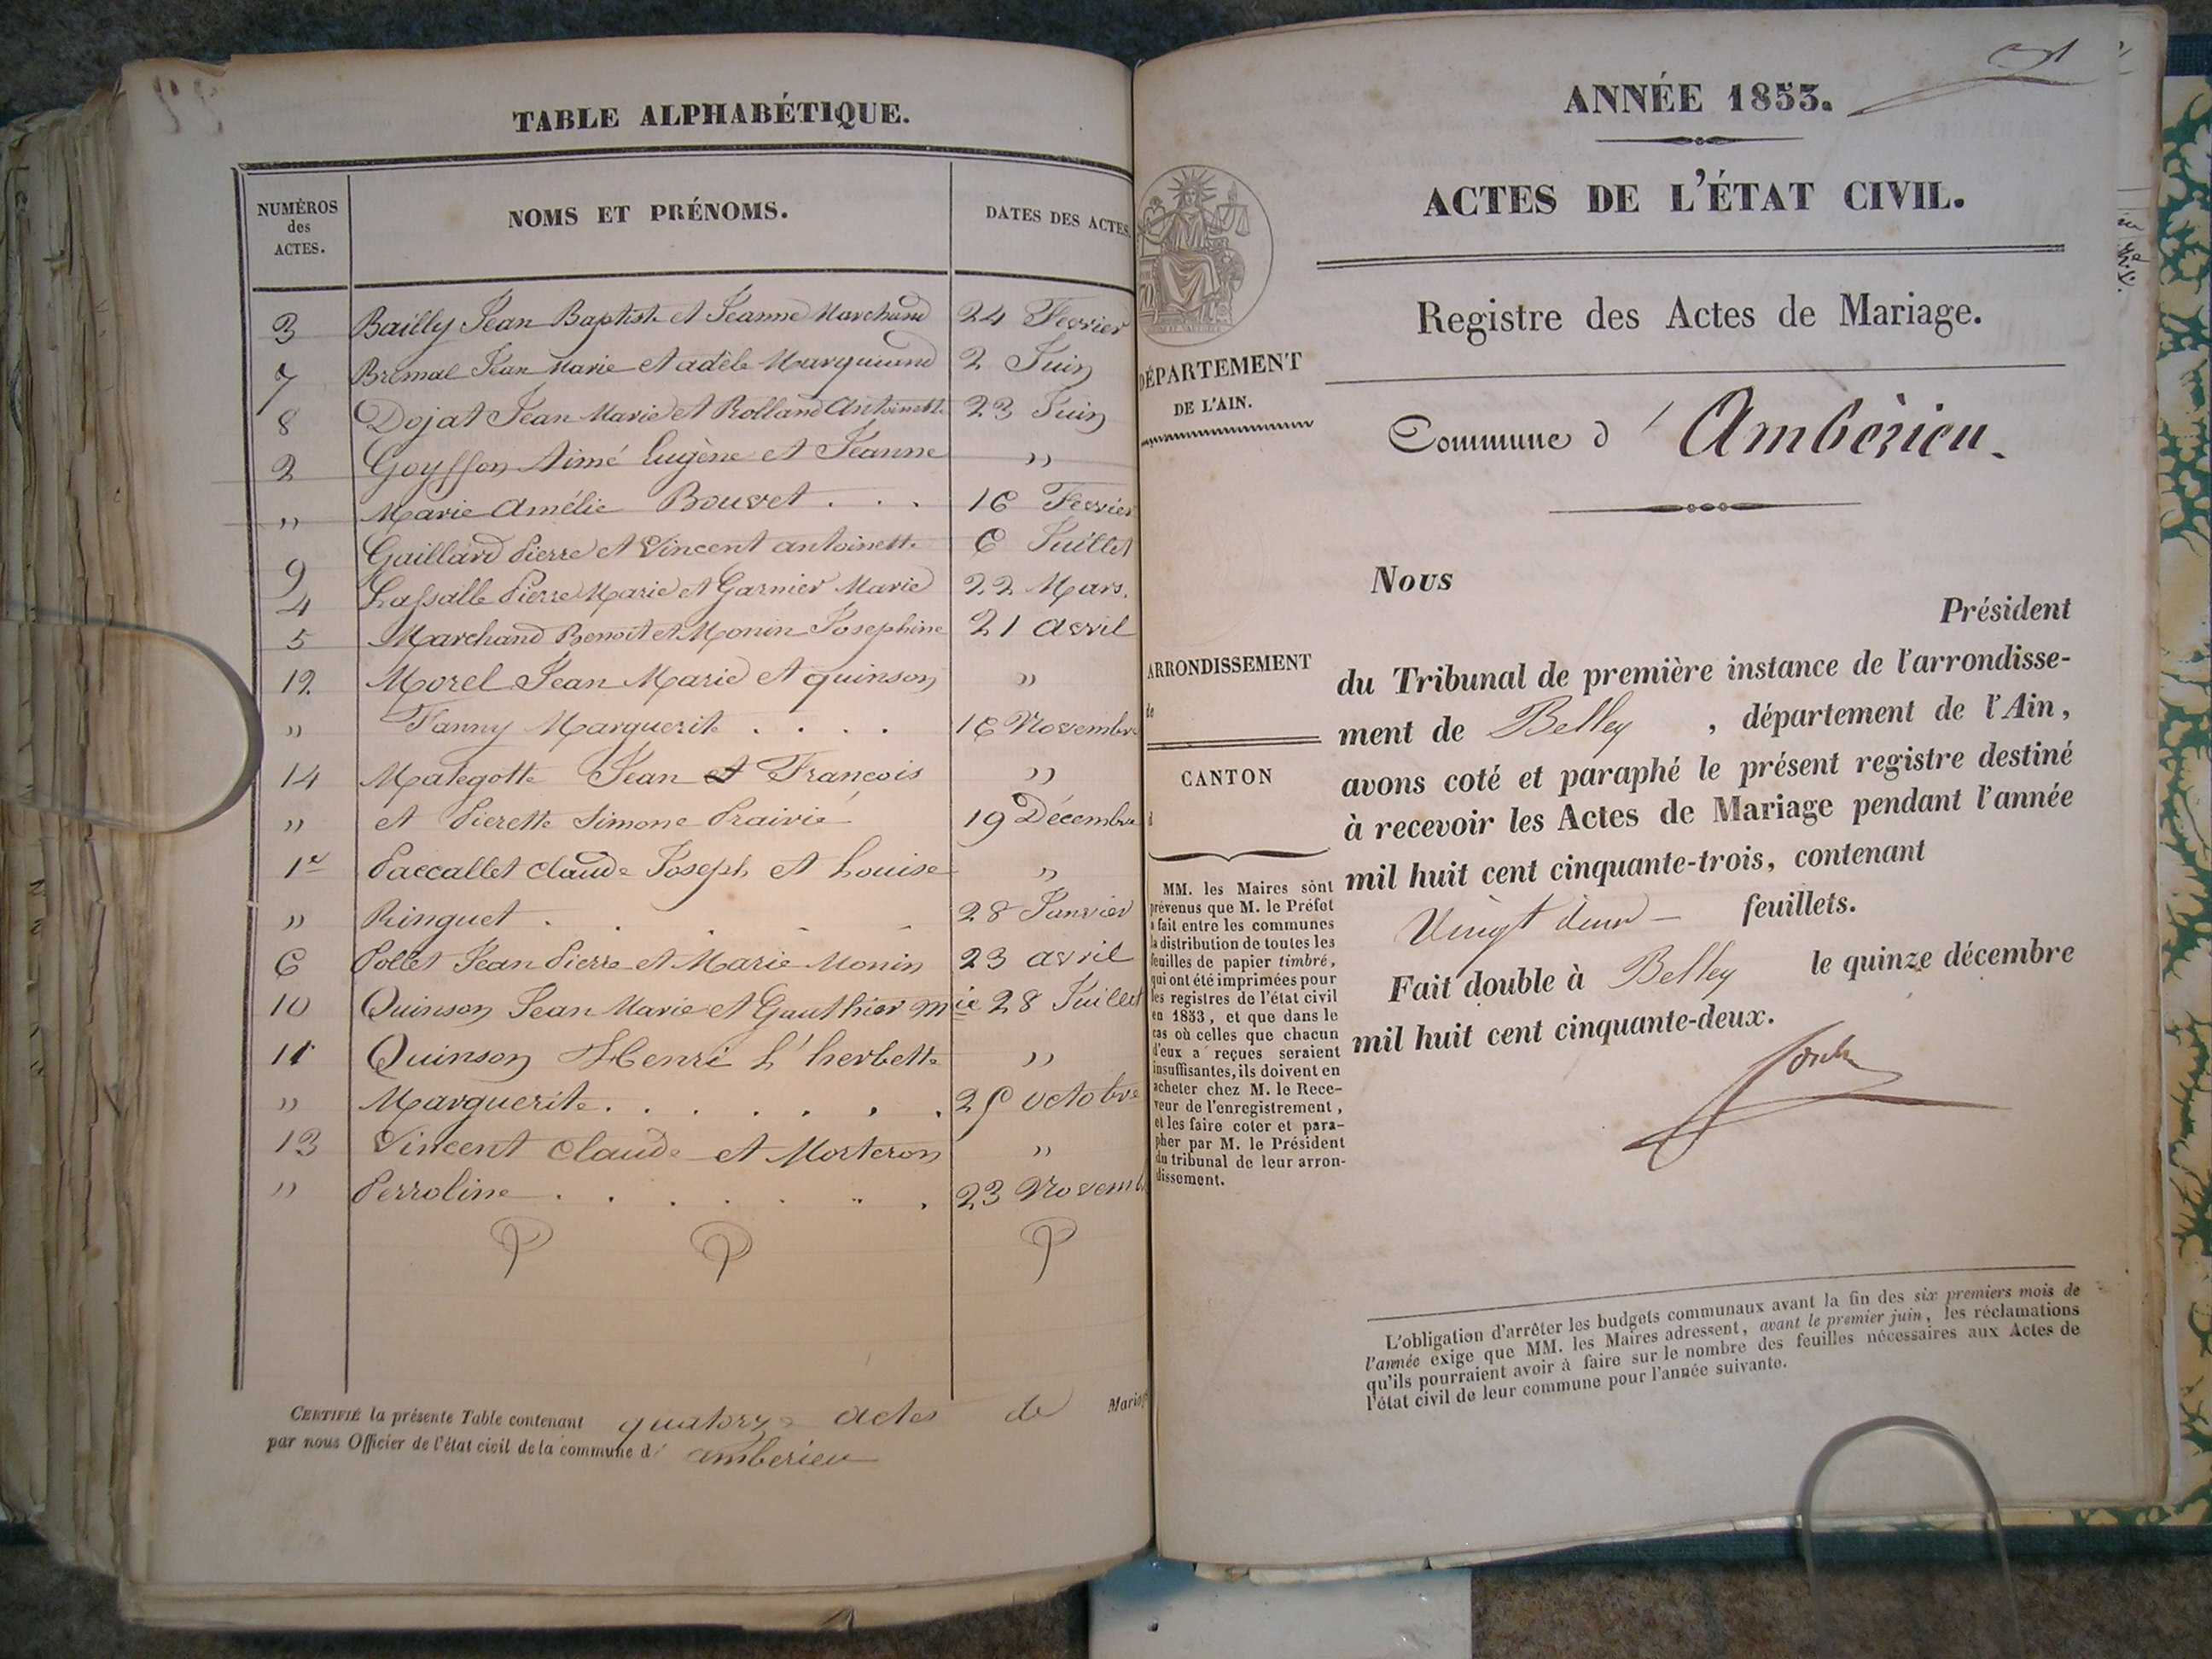 TABLE ALPHABÉTIQUE.
NUMÉROS des ACTES.
NOMS ET PRÉNOMS.
DATES DES ACTES.
3 Bailly Jean Baptiste et Jeanne Marchand 24 Fevrier
7 Bremal Jean Marie et adèle Marquand 2 Juin
8 Dojat Jean Marie et Rolland Antoinette 23 Juin
2 Goyffon Aimé Eugène et Jeanne "
" Marie Amélie Bouvet . . . 16 Fevrier
9 Gaillard Pierre et Vincent antoinette 6 Juillet
4 Lassalle Pierre Marie et Garnier Marie 22 Mars.
5 Marchand Benoit et Monin Josephine 21 avril
12 Morel Jean Marie et quinson "
" Fanny Marguerite . . . . 16 Novembre
14 Mategotte Jean et François "
" et Pierette Simone Prairié 19 Décembre
1er Paccallet claude Joseph et Louise "
" Ringuet . . . . . 28 Janvier
6 Pollet Jean Pierre et Marie Monin 23 avril
10 Quinson Jean Marie et Gauthier Mie 28 Juillet
11 Quinson Henri L'herbette "
" Marguerite . . . . . . . octobre
13 Vincent Claude et Morteron "
" Perroline . . . . . . . 23 Novemb
CERTIFIÉ la présente Table contenant quatorze actes de Mariage
par nous Officier de l'état civil de la commune d' amberieu
ANNÉE 1853.
ACTES DE L'ÉTAT CIVIL.
Registre des Actes de Mariage.
DÉPARTEMENT
DE L'AIN.
Commune d'Ambérieu.
ARRONDISSEMENT
de
CANTON
d
MM. les Maires sont
prévenus que M. le Préfet
a fait entre les communes
la distribution de toutes les
feuilles de papier timbré,
qui ont été imprimées pour
les registres de l'état civil
en 1853, et que dans le
cas où celles que chacun
d'eux a reçues seraient
insuffisantes, ils doivent en
acheter chez M. le Rece-
veur de l'enregistrement,
et les faire coter et para-
pher par M. le Président
du tribunal de leur arron-
dissement.
Nous
Président
du Tribunal de première instance de l'arrondisse-
ment de Belley , département de l'Ain,
avons coté et paraphé le présent registre destiné
à recevoir les Actes de Mariage pendant l'année
mil huit cent cinquante-trois, contenant
Vingt deux feuillets.
Fait double à Belley le quinze décembre
mil huit cent cinquante-deux.
L'obligation d'arrêter les budgets communaux avant la fin des six premiers mois de
l'année exige que MM. les Maires adressent, avant le premier juin, les réclamations
qu'ils pourraient avoir à faire sur le nombre des feuilles nécessaires aux Actes de
l'état civil de leur commune pour l'année suivante.